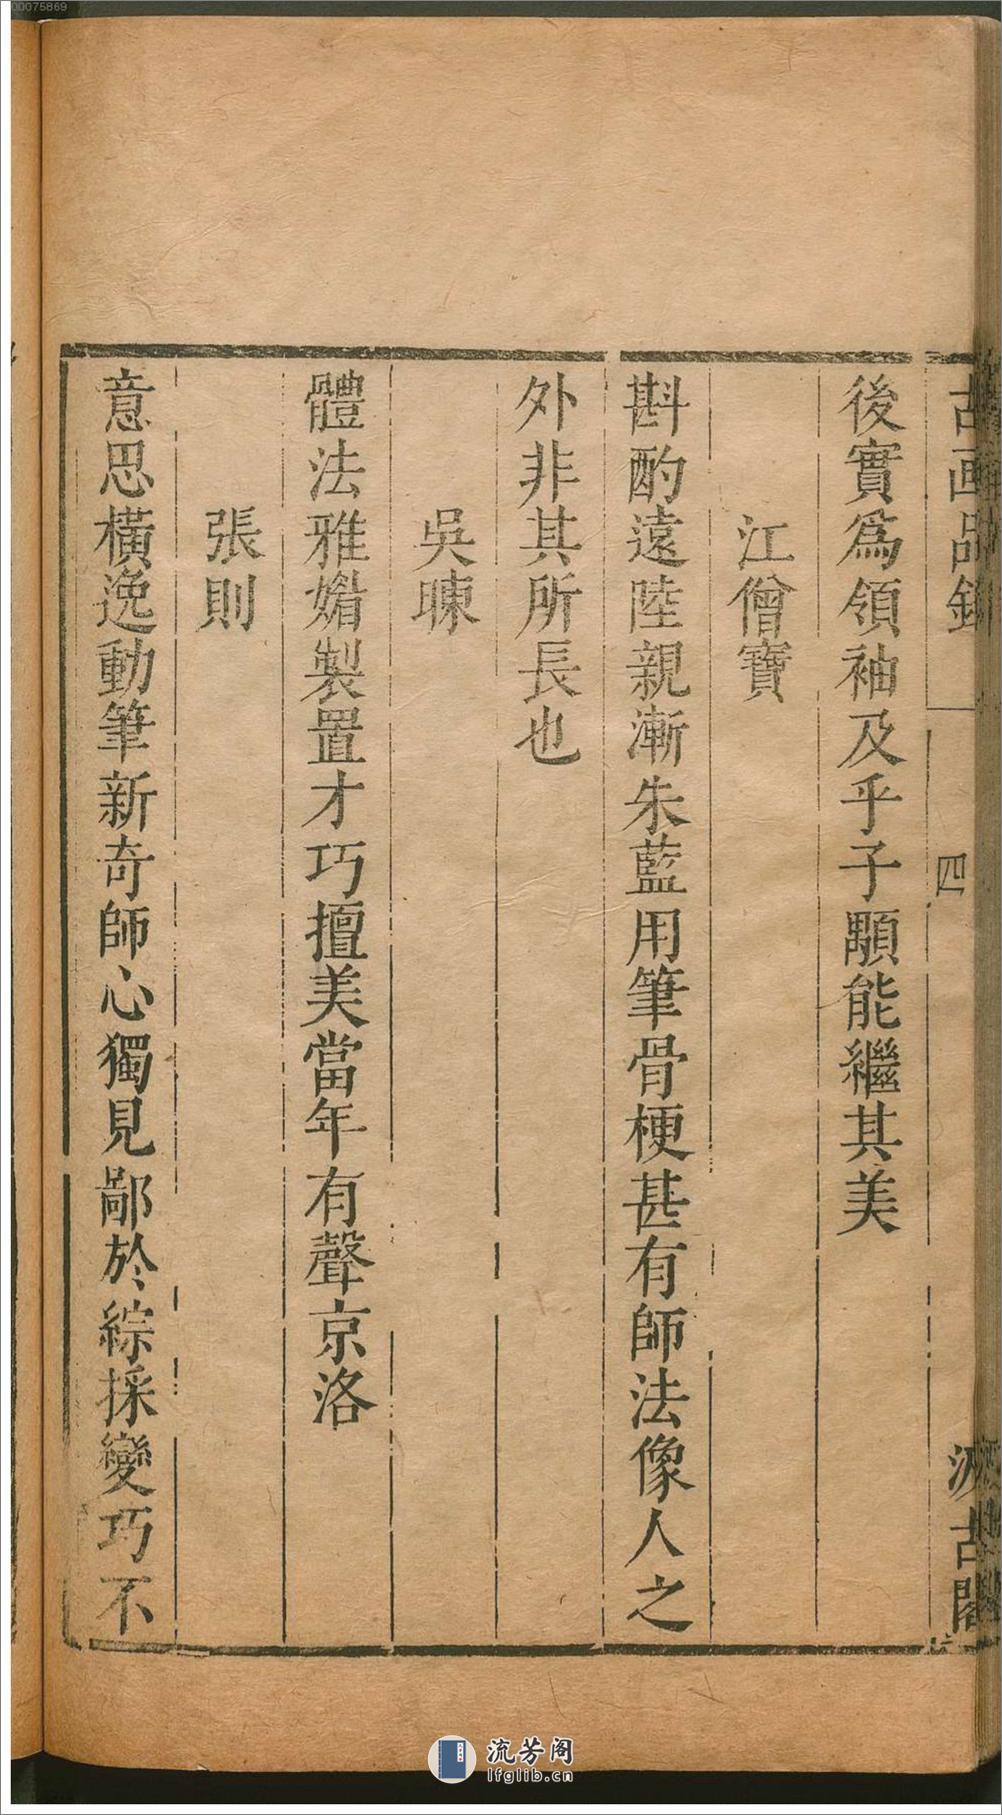 00075869
古画品錄
四
汲古閣
後實爲領袖及乎子顒能繼其美
江僧寶
斟酌遠陸親漸朱藍用筆骨梗甚有師法像人之
外非其所長也
吳暕
體法雅媚製置才巧擅美當年有聲京洛
張則
意思橫逸動筆新奇師心獨見鄙於綜採變巧不
流芳阁
lfglib.cn